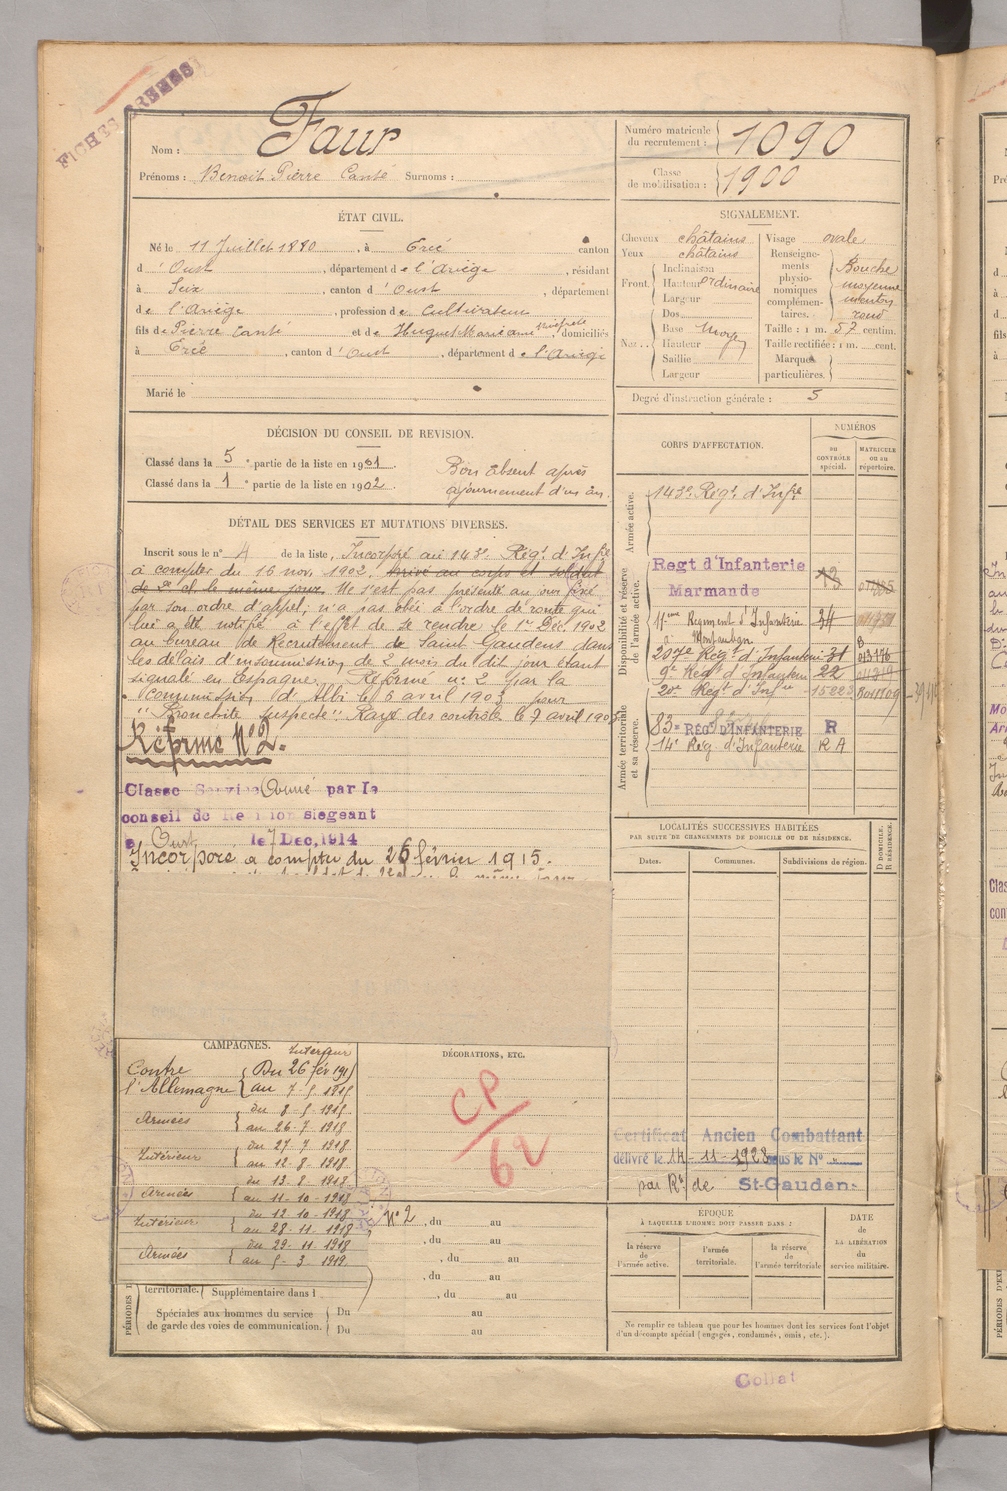 FICHES
Nom : Faur
Prénoms : Benoit Pierre Canté Surnoms :
Numéro matricule du recrutement : 1090
Classe de mobilisation : 1900
ÉTAT CIVIL.
Né le 11 Juillet 1880, à Ercé canton
d'Oust, département de l'Ariège, résidant
à Seix, canton d'Oust, département
de l'Ariège, profession de Cultivateur
fils de Pierre Canté et de Huguet Marie domiciliés
à Ercé, canton d'Oust, département de l'Ariège
Marié le
SIGNALEMENT.
Cheveux châtains
Yeux châtains
Front. Inclinaison
Hauteur ordinaire
Largeur
Nez . . Dos
Base moyen
Hauteur
Saillie
Largeur
Visage ovale
Renseignements physionomiques complémentaires. Bouche moyenne menton rond
Taille : 1 m. 57 centim.
Taille rectifiée : 1 m. cent.
Marques particulières.
Degré d'instruction générale : 3
DÉCISION DU CONSEIL DE REVISION.
Classé dans la 5e partie de la liste en 1901.
Classé dans la 1e partie de la liste en 1902.
Bon absent après
ajournement d'un an.
DÉTAIL DES SERVICES ET MUTATIONS DIVERSES.
Inscrit sous le n° 4 de la liste, Incorporé au 143e Régt d'Infie
à compter du 16 nov. 1902, arrivé au corps et soldat
de 2e cl. le même jour. Ne s'est pas présenté au jour fixé
par son ordre d'appel, n'a pas obéi à l'ordre de route qui
lui a été notifié à l'effet de se rendre le 1er Déc. 1902
au bureau de Recrutement de Saint Gaudens dans
les délais d'insoumission de 2 mois du dit jour étant
signalé en Espagne. Réformé n° 2 par la
Commission d'Albi le 6 avril 1903 pour
"Bronchite suspecte". Rayé des contrôles le 7 avril 1903
Réforme N° 2.
Classe Service Armé par le
conseil de Revision siegeant
à Oust le 7 Dec, 1914
Incorporé à compter du 26 février 1915.
CORPS D'AFFECTATION.
NUMÉROS
au CONTRÔLE spécial.
MATRICULE ou au répertoire.
Armée active.
143e Régt d'Infie
Disponibilité et réserve de l'armée active.
Regt d'Infanterie
Marmande
11ème Régiment d'Infanterie 34
à Montauban
207e Regt d'Infanterie 31
9e Regt d'Infanterie 22
20e Regt d'Infie 15223
Armée territoriale et sa réserve.
83e RÉGt D'INFANTERIE R
14e Reg d'Infanterie R A
LOCALITÉS SUCCESSIVES HABITÉES
PAR SUITE DE CHANGEMENTS DE DOMICILE OU DE RÉSIDENCE.
Dates. Communes. Subdivisions de région. D DOMICILE. R RÉSIDENCE.
Certificat Ancien Combattant
délivré le 14-11-1928 sous le N°
par Rt de St-Gaudens
CAMPAGNES.
Contre l'Allemagne
Intérieur
Du 26 fév 1915
au 7-5 1915
Armées
du 8-5 1915
au 26-7 1918
Intérieur
du 27-7 1918
au 12-8-1918
Armées
du 13-8-1918
au 11-10-1918
Intérieur
du 12-10-1918
au 28-11-1918
Armées
du 29-11 1918
au 5-3 1919
DÉCORATIONS, ETC.
CP
62
N° 2, du au
, du au
, du au
, du au
territoriale. Supplémentaire dans l , du au
Spéciales aux hommes du service de garde des voies de communication. Du au
Du au
ÉPOQUE
À LAQUELLE L'HOMME DOIT PASSER DANS :
la réserve de l'armée active.
l'armée territoriale.
la réserve de l'armée territoriale
DATE de LA LIBÉRATION du service militaire.
Ne remplir ce tableau que pour les hommes dont les services font l'objet
d'un décompte spécial (engagés, condamnés, omis, etc.).
Collat